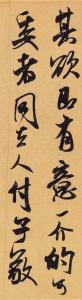 其欲有意一介的可
委者同去人付子敬